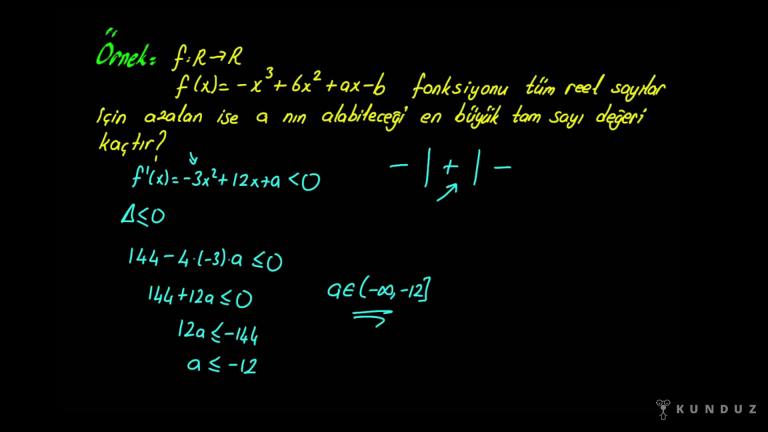 Örnek= f:R→R
f(x)=-x³+6x²+ax-b fonksiyonu tüm reel sayılar
için azalan ise a nın alabileceği en büyük tam sayı değeri
kaçtır?
f'(x)=-3x²+12x+a<0
- | + | -
Δ≤0
144-4·(-3)·a≤0
144+12a≤0
a∈(-∞,-12]
12a≤-144
a≤-12
KUNDUZ